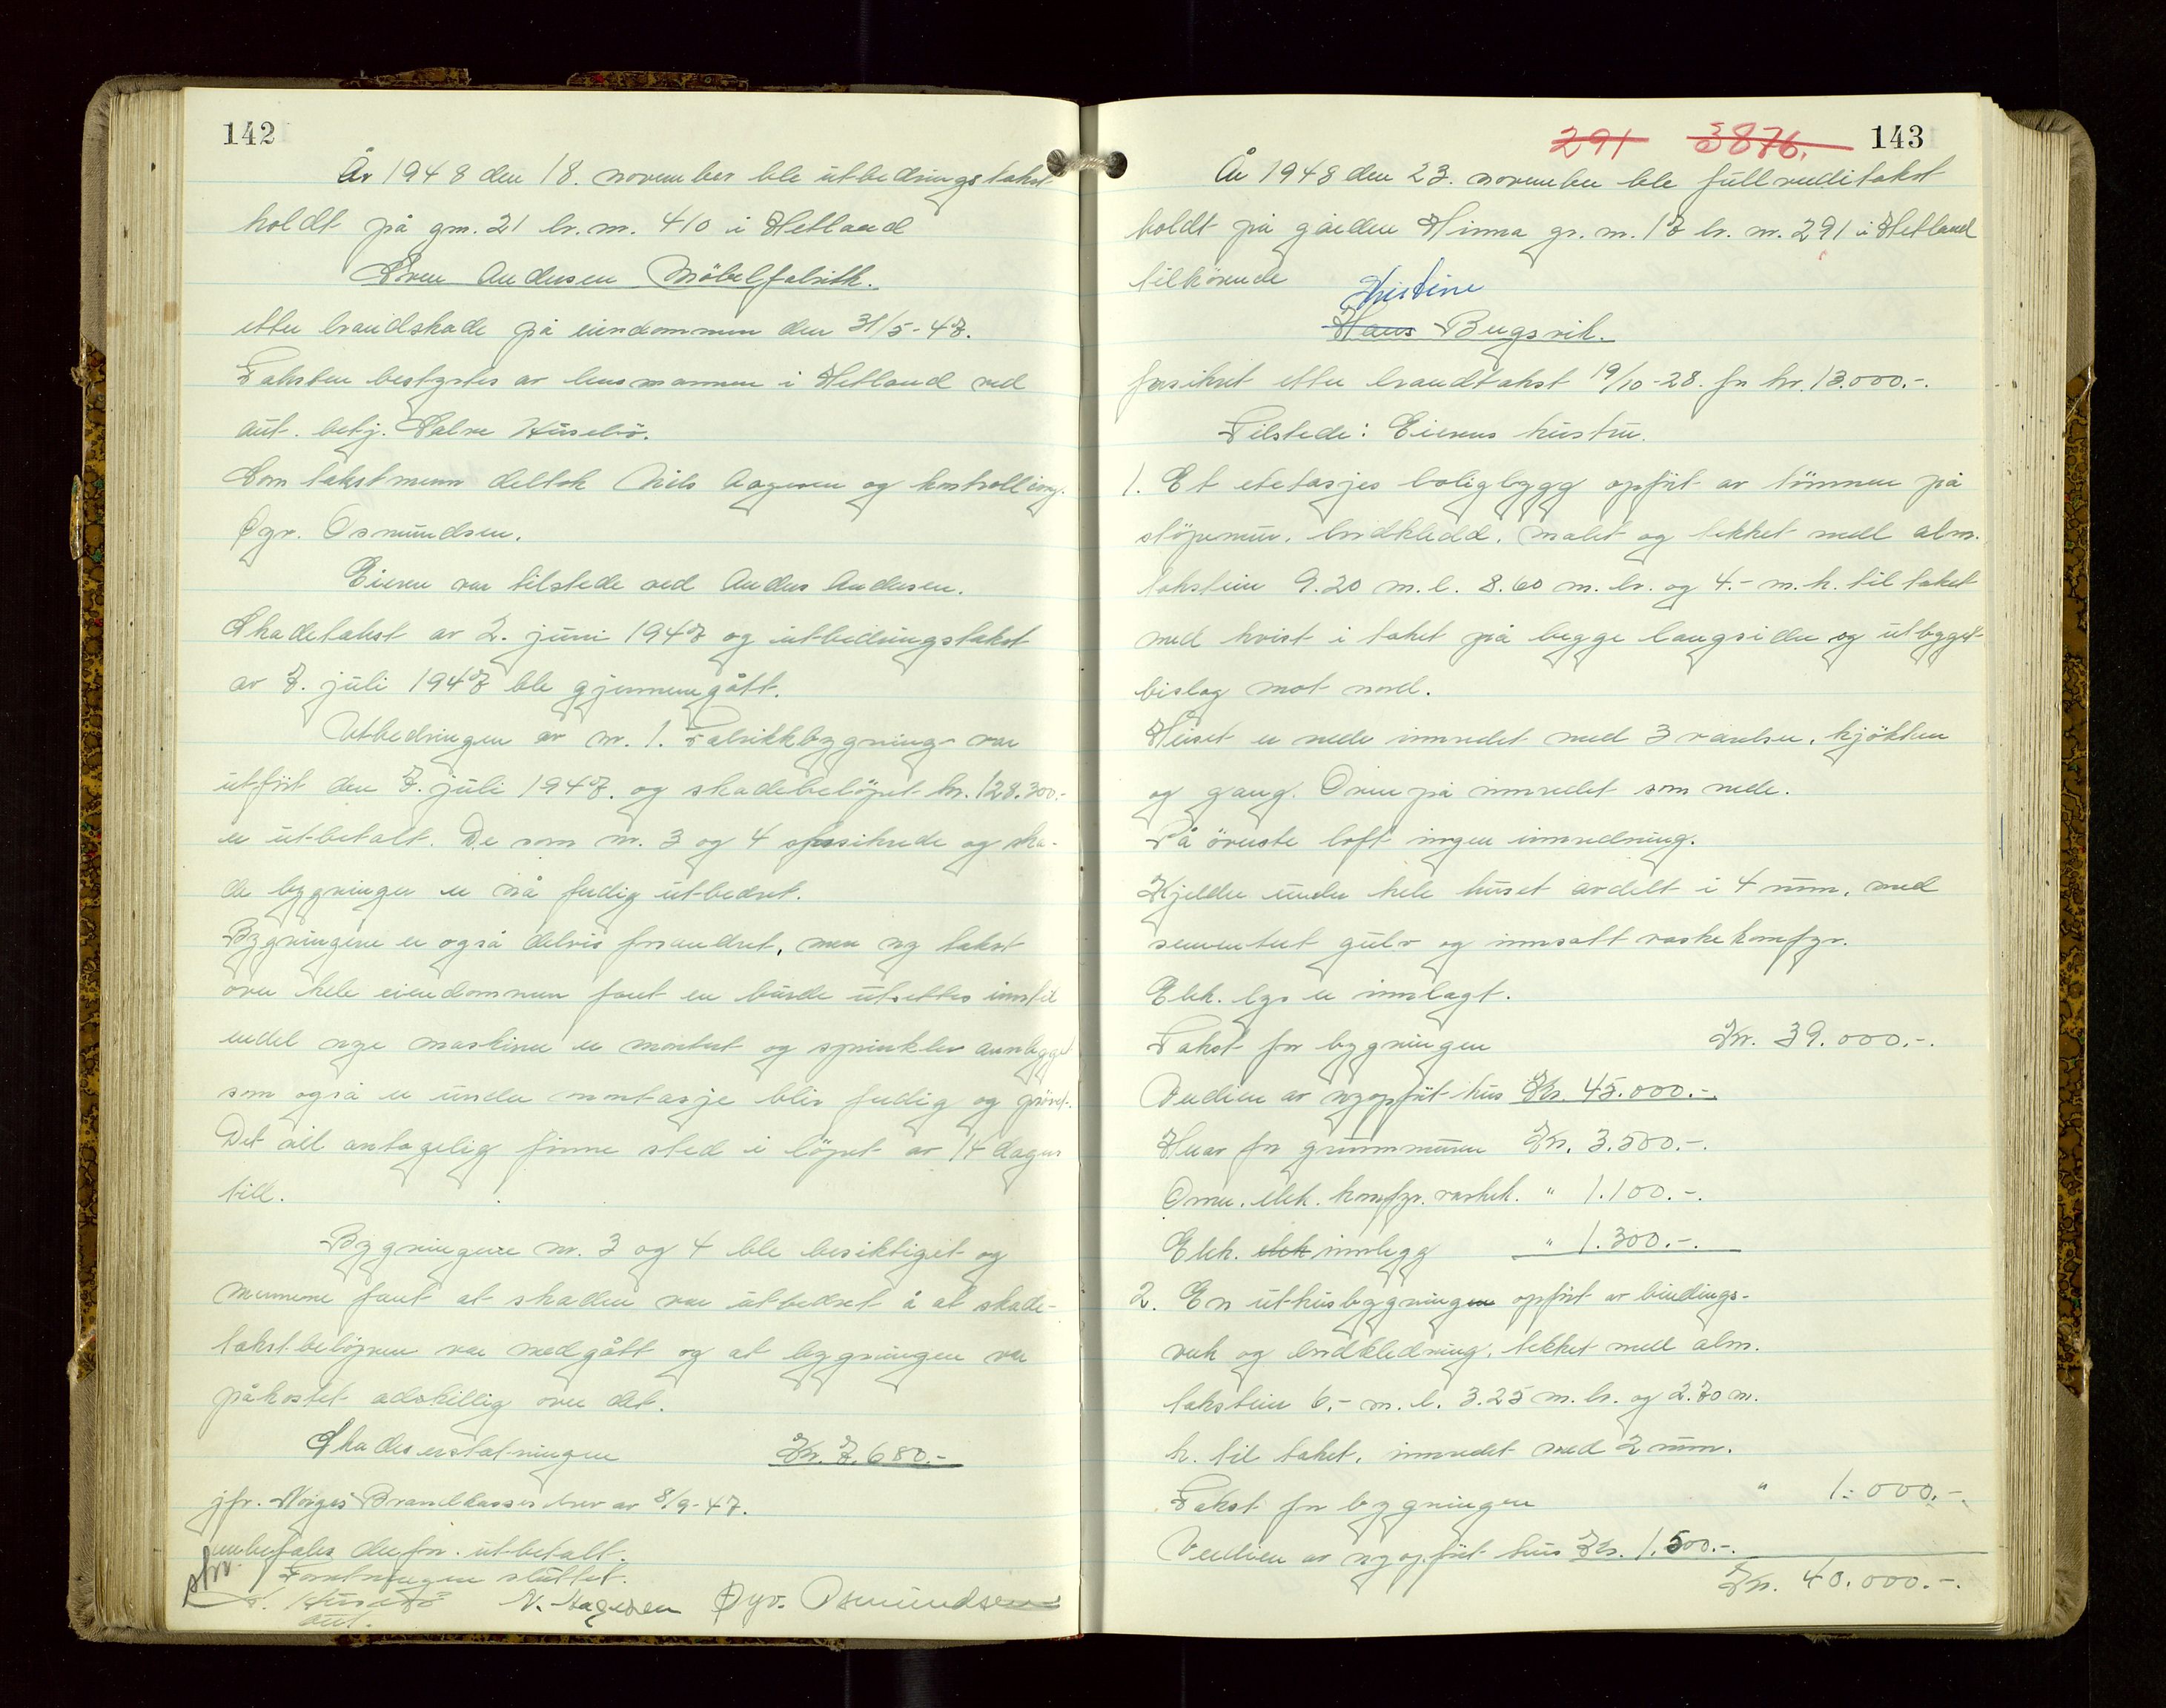 142
År 1948 den 18. november ble utbedringstakst
holdt på gnr. 21 br. nr. 410 i Hetland
Sven Andersen Møbelfabrikk.
etter brandskade på eiendommen den 31/5-47.
Taksten bestyrtes av lensmannen i Hetland ved
aut. betj. Salve Husebø.
Som takstmenn deltok Nils Aagesen og kontrolling.
Øyv. Osmundsen.
Eieren var tilstede ved Anders Andersen.
Skadetakst av 2. juni 1947 og utbedringstakst
av 7. juli 1947 ble gjennemgått.
Utbedringen av nr. 1. Fabrikkbygning var
utført den 7. juli 1947. og skadebeløpet kr. 128.300.-
er utbetalt. De som nr. 3 og 4 forsikrede og ska-
de bygninger er nå ferdig utbedret.
Bygningene er også delvis forandret, men ny takst
over hele eiendommen fant en burde utsettes inntil
endel nye maskiner er montert og sprinkler annlegget
som også er under montasje blir ferdig og prövet.
Det vil antagelig finne sted i löpet av 14 dager
till.
Bygningene nr. 3 og 4 ble besiktiget og
mennene fant at skaden var utbedret å at skade-
takstbelöpene var medgått og at bygningen var
påkostet adskillig over det.
Skadeserstatningen Kr. 7.680.-
jfr. Norges Brandkasses brev av 8/9-47.
anbefales derfor utbetalt.
Forretningen sluttet.
S. Husebø N. Aagesen Øyv. Osmundsen
aut.
291 3876. 143
År 1948 den 23. november ble fullverditakst
holdt på gården Hinna gr. nr. 17 br. nr. 291 i Hetland
tilhörende
Kristine
Hans Bugsvik.
forsikret etter brandtakst 19/10-28. for kr. 13.000.-.
Tilstede: Eierens hustru.
1. Et etetasjes boligbygg opfört av tömmer på
stöpemur, bordkledd, malet og tekket med alm.
takstein 9.20 m. l. 8.60 m. br. og 4.- m. h. til taket
med kvist i taket på begge langsider og utbygget
bislag mot nord.
Huset er nede innredet med 3 værelser, kjökken
og gang. Ovenpå innredet som nede.
På överste loft ingen innredning.
Kjelder under hele huset avdelt i 4 rum, med
sementert gulv og innsatt vaskekomfyr.
Elek. lys er innlagt.
Takst for bygningen Kr. 39.000.-.
Verdien av nyopfört hus Kr. 45.000.-.
Herav for grunnmuren Kr. 3.500.-.
Ovner, elek. komfyr. vaskek. " 1.100.-.
Elek. elek innlegg " 1.300.-.
2. En uthusbygningen opfört av bindings-
verk og bordkledning, tekket med alm.
takstein 6.- m. l. 3.25 m. br. og 2.70 m.
h. til taket, innredet med 2 rum.
Takst for bygningen " 1.000.-.
Verdien av nyopfört hus Kr. 1.500.-.
Kr. 40.000.-.